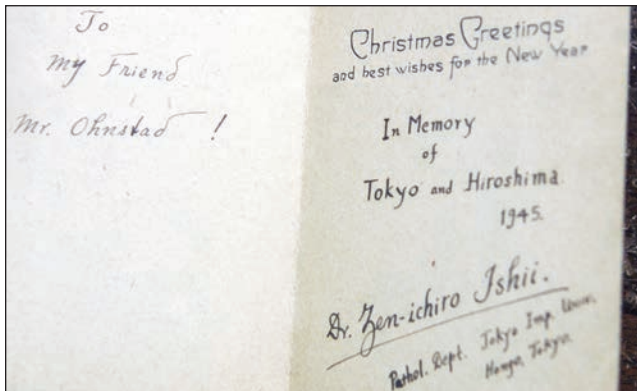 To
My Friend
Mr. Ohnstad !
Christmas Greetings
and best wishes for the New Year
In Memory
of
Tokyo and Hiroshima
1945.
Dr. Zen-ichiro Ishii.
Pathol. Dept. Tokyo Imp. Univ.
Hongo, Tokyo.